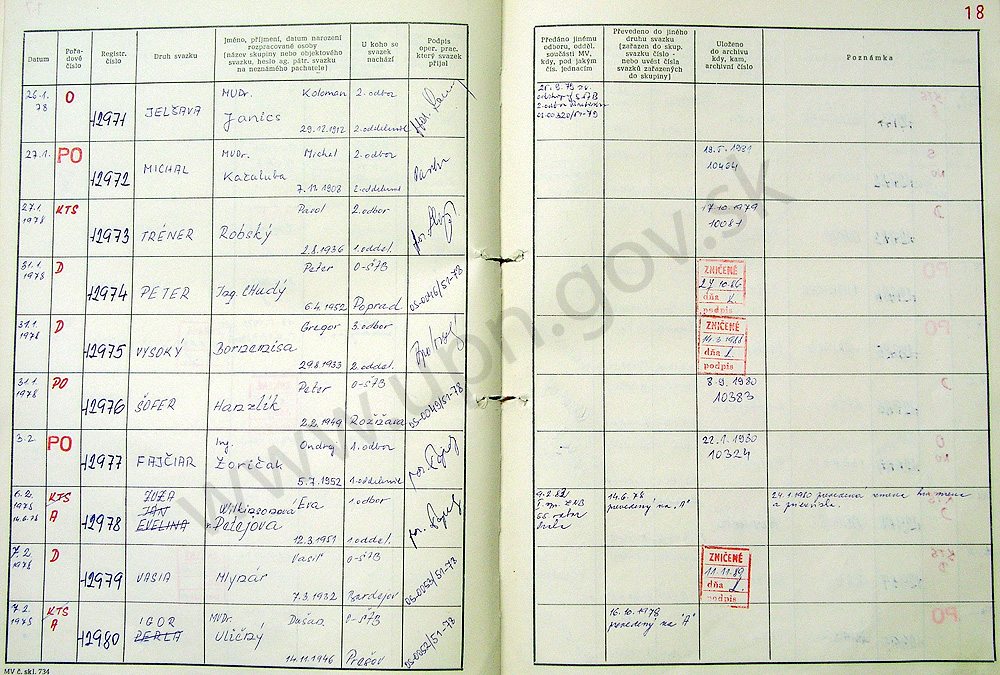 18
Datum
Pořa-
dové
číslo
Registr.
číslo
Druh svazku
Jméno, příjmení, datum narození
rozpracované osoby
(název skupiny nebo objektového
svazku, heslo ag. pátr. svazku
na neznámého pachatele)
U koho se
svazek
nachází
Podpis
oper. prac.
který svazek
přijal
Předáno jinému
odboru, odděl.
součásti MV,
kdy, pod jakým
čís. jednacím
Převedeno do jiného
druhu svazku
(zařazen do skup.
svazku číslo -
nebo uvést čísla
svazků zařazených
do skupiny)
Uloženo
do archivu
kdy, kam,
archivní číslo
Poznámka
26.1.
78
O
12971
JELŠAVA
MUDr. Koloman
Janics
29.12.1912
2. odbor
2. oddelenie
2. odbor
27.1.
PO
12972
MICHAL
MUDr. Michal
Kačaluba
7.11.1908
2. odbor
2. oddelenie
10464
27.1.
1978
KTS
12973
TRÉNER
Pavol
Robský
2.8.1936
2. odbor
1. oddel.
17.10.1979
10081
31.1.
1978
D
12974
PETER
Peter
Ing. Chudý
6.4.1952
O-ŠtB
Poprad
OS-0046/51-78
ZNIČENÉ
27.10.86
dňa
podpis
31.1.
1978
D
12975
VYSOKÝ
Gregor
Bornemisa
29.8.1933
3. odbor
2. oddel.
ZNIČENÉ
dňa
podpis
31.1.
1978
PO
12976
ŠOFER
Peter
Hanzlik
2.2.1949
O-ŠtB
Rožňava
OS-0049/51-78
8.9.1980
10383
3.2.
PO
12977
FAJČIAR
Ing. Ondrej
Zoričak
5.7.1952
1. odbor
1. oddelenie
22.1.1980
10324
6.2.
1978
KTS
A
12978
ZUZA
JAN
EVELINA
Wilkinsonova Eva
Petejova
12.3.1951
1. odbor
1. oddel.
9.2.82
14.6.78
prevedený na "A"
24.1.1980 prevedena zmena
7.2.
1978
D
12979
VASIA
Vasil
Mlynár
7.3.1932
O-ŠtB
Bardejov
OS-0053/51-78
ZNIČENÉ
11.11.89
dňa
podpis
7.2.
1978
KTS
A
12980
IGOR
PERLA
MUDr. Dušan
Uličný
14.11.1946
O-ŠtB
Prešov
OS-0052/51-78
16.10.1978
prevedený na "A"
MV č. skl. 734
www.upn.gov.sk